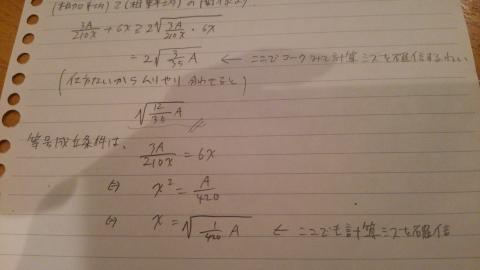 (相加平均) ≧ (相乗平均) の関係より
3A/210x + 6x ≧ 2√(3A/210x ・ 6x)
= 2√(3/35 A) ← ここでコーク 計算ミスを確信する
(仕方ないからムリやり 合わせると
√(12/35 A)
等号成立条件は、
3A/210x = 6x
⇔ x² = A/420
⇔ x = √(1/420 A) ← ここでも計算ミスを確信